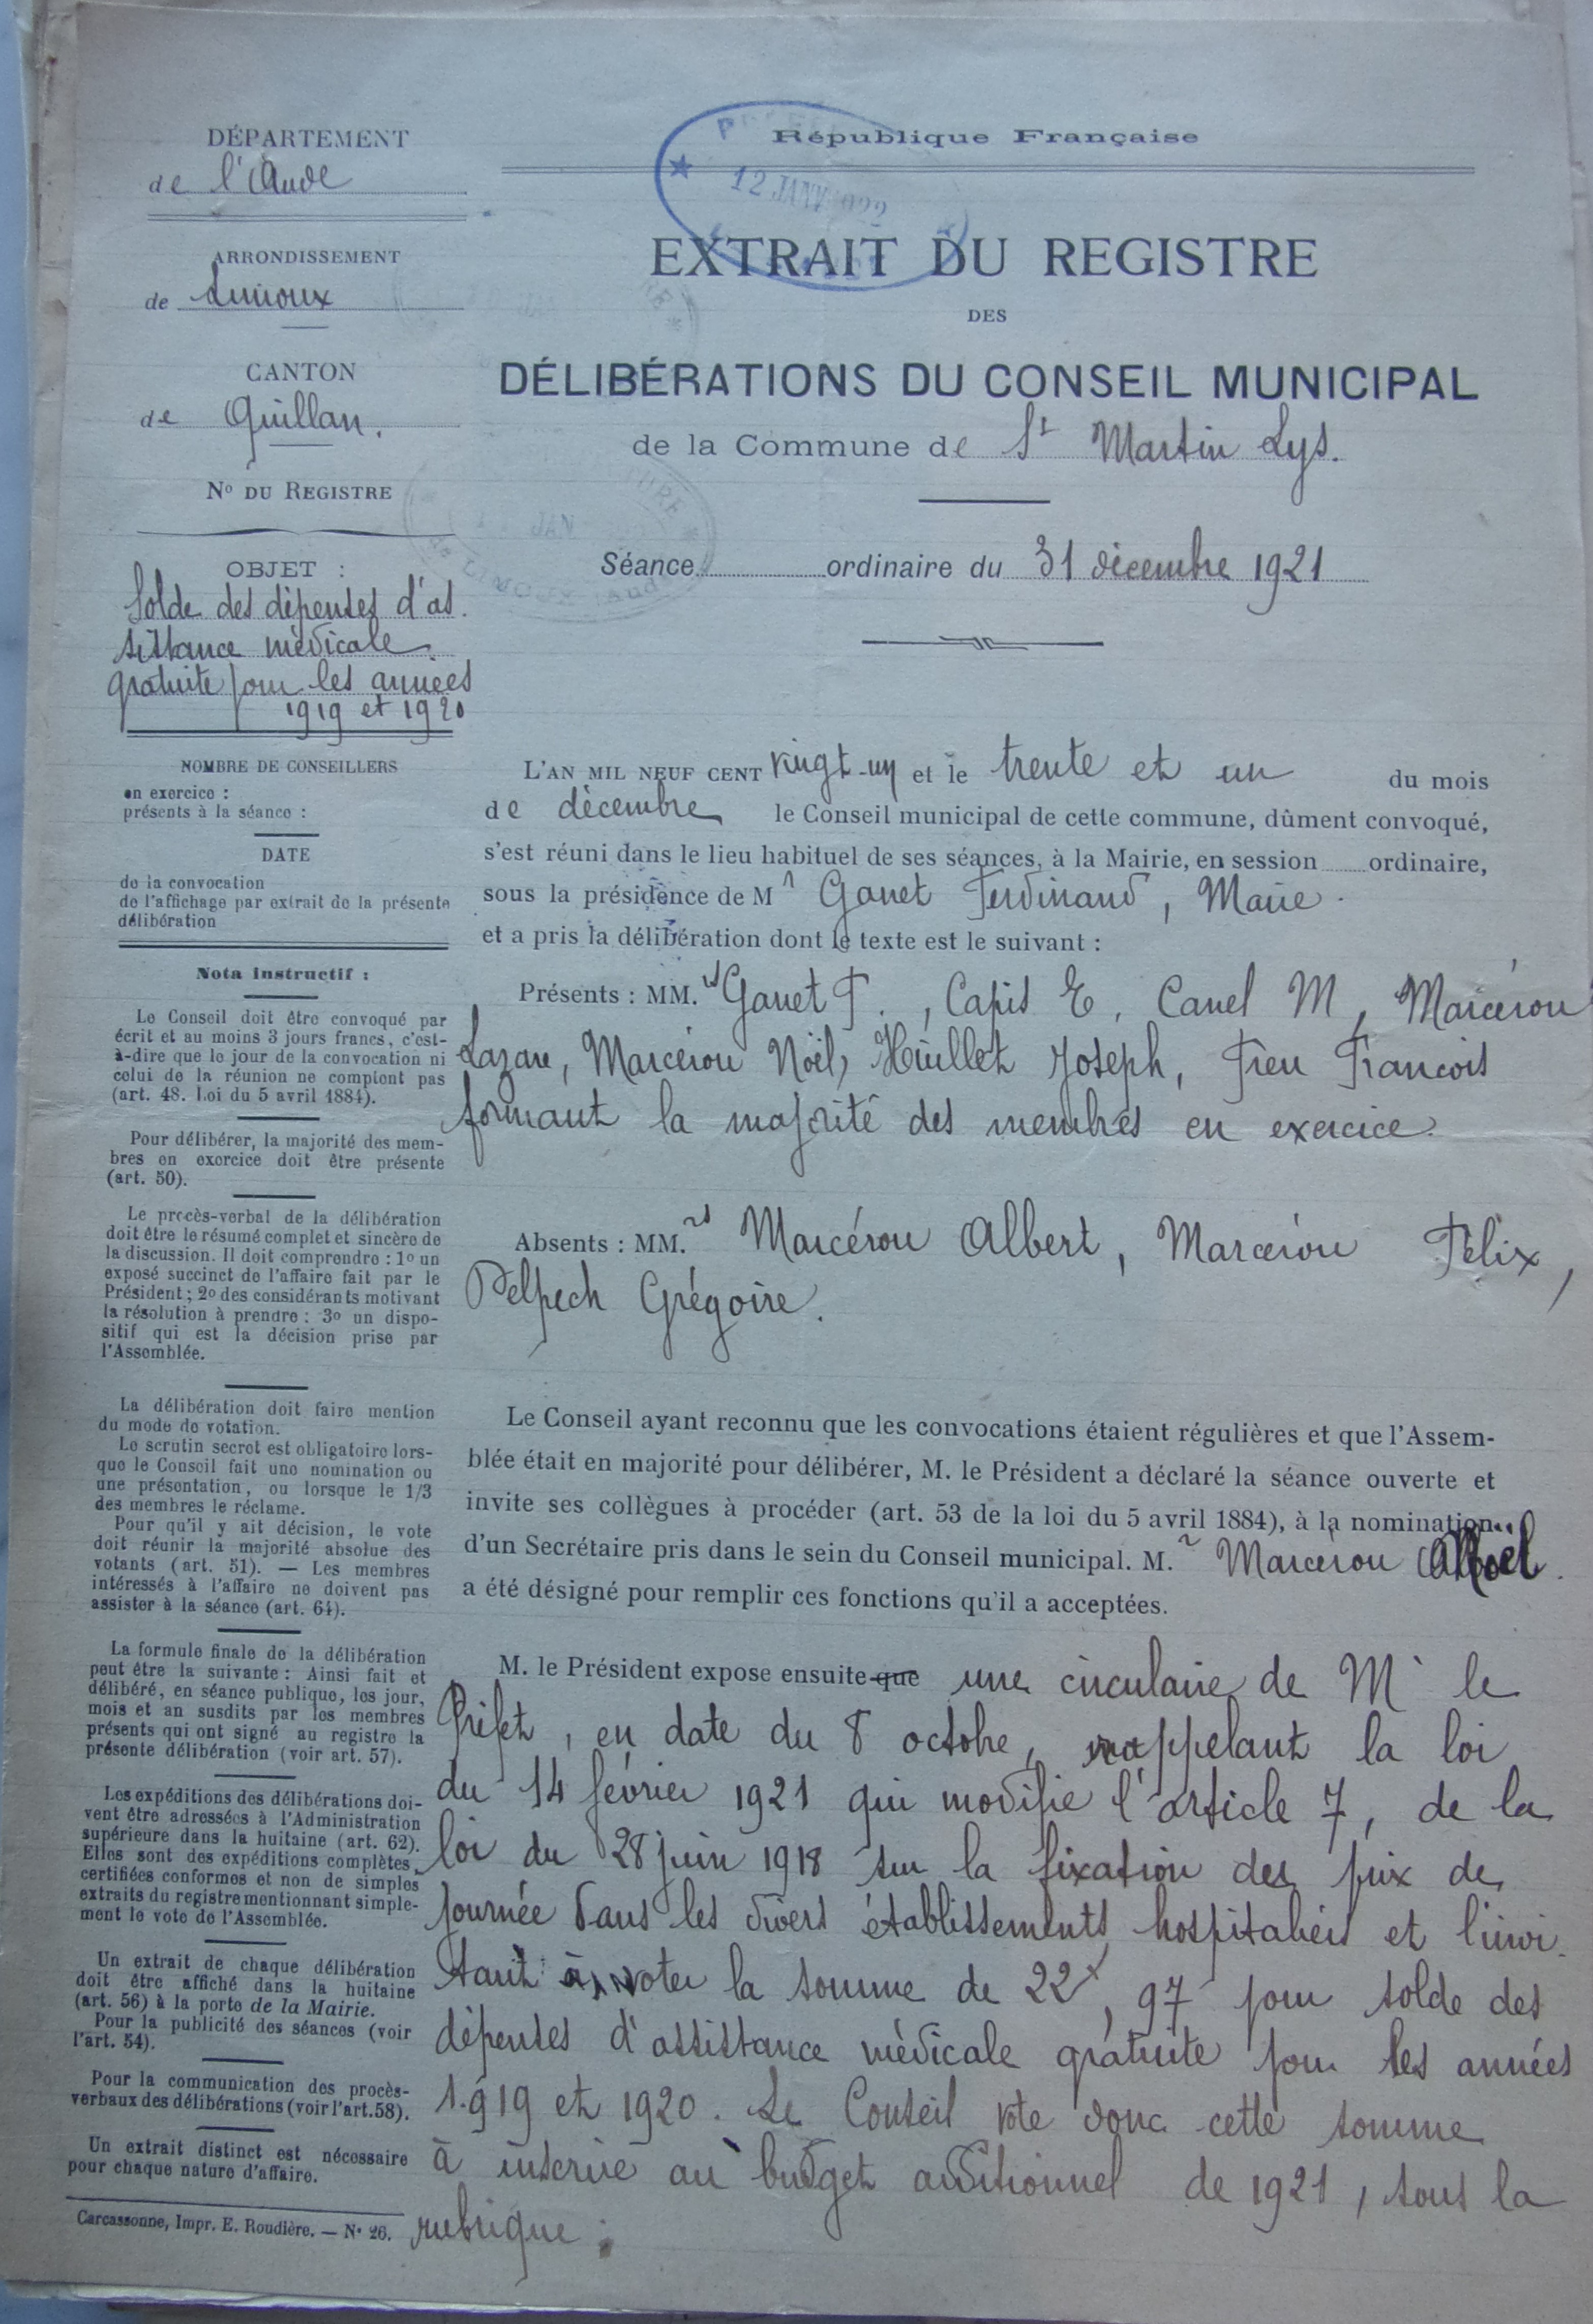 DÉPARTEMENT
de l'Aude
ARRONDISSEMENT
de Limoux
CANTON
de Quillan.
N° DU REGISTRE
OBJET :
Solde des dépenses d'as
sistance médicale
gratuite pour les années
1919 et 1920
NOMBRE DE CONSEILLERS
en exercice :
présents à la séance :
DATE
de la convocation
de l'affichage par extrait de la présente
délibération
Nota instructif :
Le Conseil doit être convoqué par
écrit et au moins 3 jours francs, c'est-
à-dire que le jour de la convocation ni
celui de la réunion ne comptent pas
(art. 48. Loi du 5 avril 1884).
Pour délibérer, la majorité des mem-
bres en exercice doit être présente
(art. 50).
Le procès-verbal de la délibération
doit être le résumé complet et sincère de
la discussion. Il doit comprendre : 1° un
exposé succinct de l'affaire fait par le
Président ; 2° des considérants motivant
la résolution à prendre : 3° un dispo-
sitif qui est la décision prise par
l'Assemblée.
La délibération doit faire mention
du mode de votation.
Le scrutin secret est obligatoire lors-
que le Conseil fait une nomination ou
une présentation, ou lorsque le 1/3
des membres le réclame.
Pour qu'il y ait décision, le vote
doit réunir la majorité absolue des
votants (art. 51). — Les membres
intéressés à l'affaire ne doivent pas
assister à la séance (art. 64).
La formule finale de la délibération
peut être la suivante : Ainsi fait et
délibéré, en séance publique, les jour,
mois et an susdits par les membres
présents qui ont signé au registre la
présente délibération (voir art. 57).
Les expéditions des délibérations doi-
vent être adressées à l'Administration
supérieure dans la huitaine (art. 62).
Elles sont des expéditions complètes,
certifiées conformes et non de simples
extraits du registre mentionnant simple-
ment le vote de l'Assemblée.
Un extrait de chaque délibération
doit être affiché dans la huitaine
(art. 56) à la porte de la Mairie.
Pour la publicité des séances (voir
l'art. 54).
Pour la communication des procès-
verbaux des délibérations (voir l'art.58).
Un extrait distinct est nécessaire
pour chaque nature d'affaire.
Carcassonne, Impr. E. Roudière. — N° 26.
République Française
12 JANV 1922
EXTRAIT DU REGISTRE
DES
DÉLIBÉRATIONS DU CONSEIL MUNICIPAL
de la Commune de St Martin Lys.
Séance ordinaire du 31 décembre 1921
L'AN MIL NEUF CENT vingt-un et le trente et un du mois
de décembre le Conseil municipal de cette commune, dûment convoqué,
s'est réuni dans le lieu habituel de ses séances, à la Mairie, en session ordinaire,
sous la présidence de Mr Ganet Ferdinand, Maire.
et a pris la délibération dont le texte est le suivant :
Présents : MM.rs Ganet F., Capis E, Canel M, Marcérou
Lazare, Marcérou Noël, Huillet Joseph, Freu Francois
formant la majorité des membres en exercice.
Absents : MM.rs Marcérou Albert, Marcérou Félix,
Delpech Grégoire.
Le Conseil ayant reconnu que les convocations étaient régulières et que l'Assem-
blée était en majorité pour délibérer, M. le Président a déclaré la séance ouverte et
invite ses collègues à procéder (art. 53 de la loi du 5 avril 1884), à la nomination
d'un Secrétaire pris dans le sein du Conseil municipal. M.r Marcérou Noël.
a été désigné pour remplir ces fonctions qu'il a acceptées.
M. le Président expose ensuite que une circulaire de Mr le
Préfet, en date du 8 octobre, rappelant la loi
du 14 février 1921 qui modifie l'article 7, de la
loi du 28 juin 1918 sur la fixation des prix de
journée dans les divers établissements hospitaliers et l'invi
tant à voter la somme de 22f, 97 pour solde des
dépenses d'assistance médicale gratuite pour les années
1919 et 1920. Le Conseil vote donc cette somme
à inscrire au budget additionnel de 1921, sous la
rubrique :